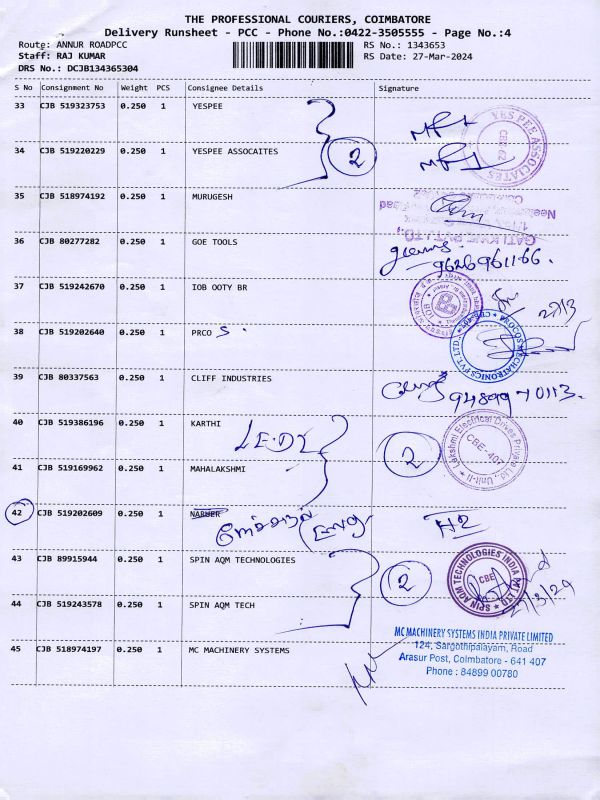 THE PROFESSIONAL COURIERS, COIMBATORE
Delivery Runsheet - PCC - Phone No.:0422-3505555 - Page No.:4
Route: ANNUR ROADPCC
RS No.: 1343653
Staff: RAJ KUMAR
RS Date: 27-Mar-2024
DRS No.: DCJB134365304
S No Consignment No Weight PCS Consignee Details Signature
33 CJB 519323753 0.250 1 YESPEE
YES PEE ASSOCIATES
34 CJB 519220229 0.250 1 YESPEE ASSOCAITES
2
35 CJB 518974192 0.250 1 MURUGESH
36 CJB 80277282 0.250 1 GOE TOOLS
9626961166.
37 CJB 519242670 0.250 1 IOB OOTY BR
IOB
38 CJB 519202640 0.250 1 PRCO S.
39 CJB 80337563 0.250 1 CLIFF INDUSTRIES
40 CJB 519386196 0.250 1 KARTHI
2
Lakshmi Electrical Drives Private Ltd. Unit-II
CBE-407
41 CJB 519169962 0.250 1 MAHALAKSHMI
42 CJB 519202609 0.250 1
Eng.
H2
43 CJB 89915944 0.250 1 SPIN AQM TECHNOLOGIES
2
SPIN AQM TECHNOLOGIES INDIA PVT LTD
CBE
44 CJB 519243578 0.250 1 SPIN AQM TECH
27/3/24
45 CJB 518974197 0.250 1 MC MACHINERY SYSTEMS
MC MACHINERY SYSTEMS INDIA PRIVATE LIMITED
124, Sargothipalayam, Road
Arasur Post, Coimbatore - 641 407
Phone : 84899 00780